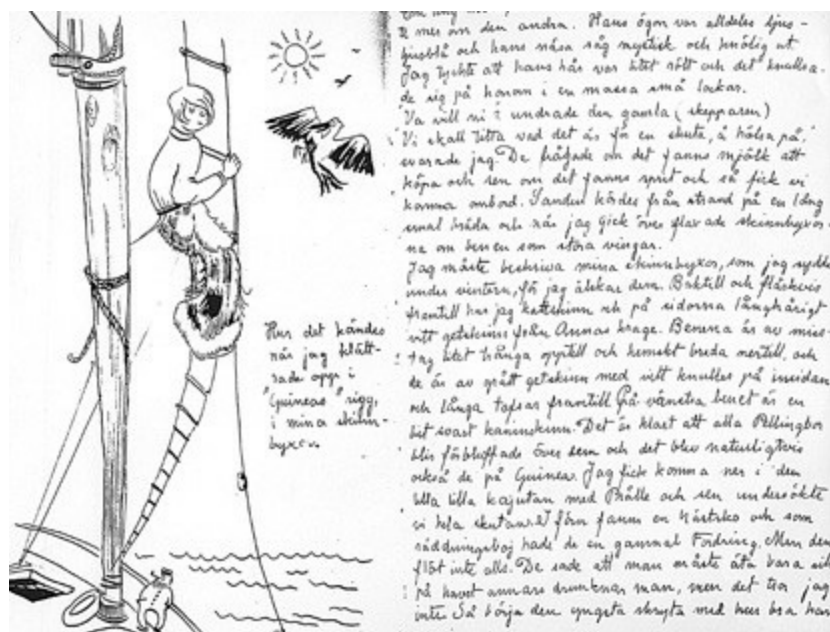 Hur det kändes
när jag klätt-
rade opp i
"Guineas" rigg,
i mina skinn-
byxor.
mer om den andra. Hans ögon var alldeles ljus-
ljusblå och hans näsa såg mystisk och knölig ut
Jag tyckte att hans hår var litet rött och det krulla-
de sig på honom i en massa små lockar.
Va vill ni? undrade den gamla (skepparen)
Vi skall titta vad det är för en skuta, å hälsa på,
svarade jag. De frågade om det fanns mjölk att
köpa och sen om det fanns sprit och så fick vi
komma ombord. Sanden kördes från strand på en lång
smal bräda och när jag gick över flaxade skinnbyxor-
na om benen som stora vingar.
Jag måste beskriva mina skinnbyxor, som jag sydde
under vintern, för jag älskar dem. Baktill och fläckvis
framtill har jag kattskinn och på sidorna långhårigt
vitt getskinn från Annas krage. Benena är av
litet trånga opptill och hemskt breda nertill, och
de är av grått getskinn med vitt på insidan
och långa tofsar framtill. På vänstra benet är en
bit svart kaninskinn. Det är klart att alla Pellingbor
blir förbluffade över dem och det blev naturligtvis
också de på Guinea. Jag fick komma ner i den
lilla lilla kajutan med Prålle och sen undersökte
vi hela skutan. I förn fanns en hästsko och som
räddningsboj hade de en gammal Fordring. Men den
flöt inte alls. De sade att man måste äta bara
på havet annars drunknar man, men det tror jag
inte. Så börja den yngsta skryta med hur bra han